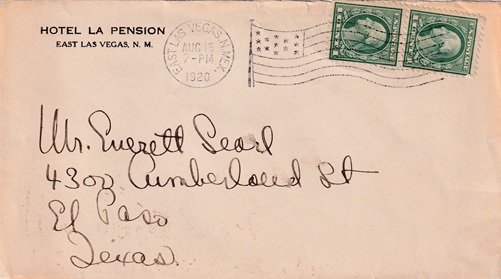 HOTEL LA PENSION
EAST LAS VEGAS, N. M.
EAST LAS VEGAS, N.MEX.
AUG 15
7-PM
1920
1 1
Mr. Everett Searl
4300 Cumberland St
El Paso
Texas.